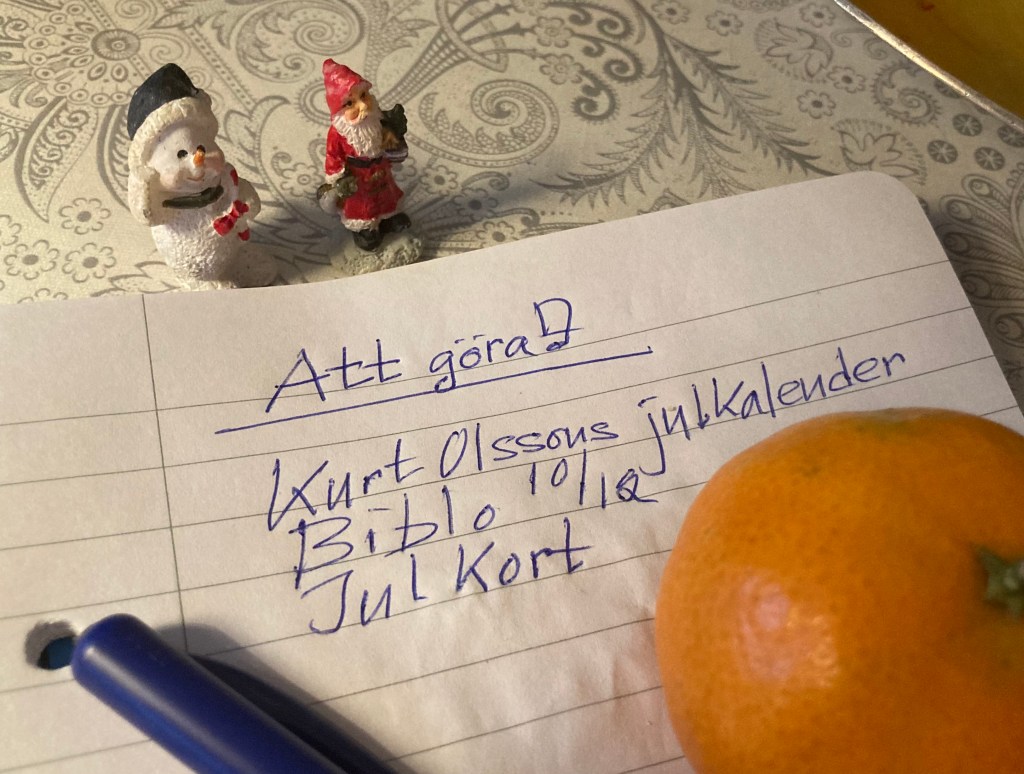 Att göra!
Kurt Olssons julkalender
Biblo 10/12
Jul Kort